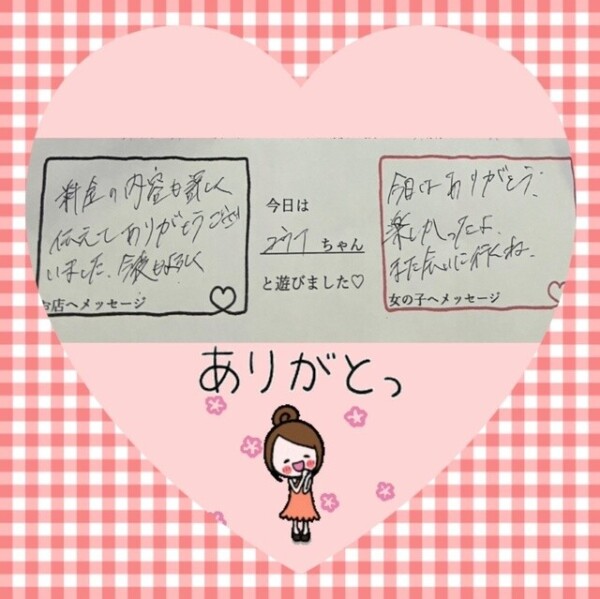 料金の内容も詳しく
伝えてありがとうござ
いました、今後もよろしく
お店へメッセージ
今日は
ちゃん
と遊びました♡
今日はありがとう、
楽しかったよ、
また会いに行くね、
女の子へメッセージ
ありがとっ